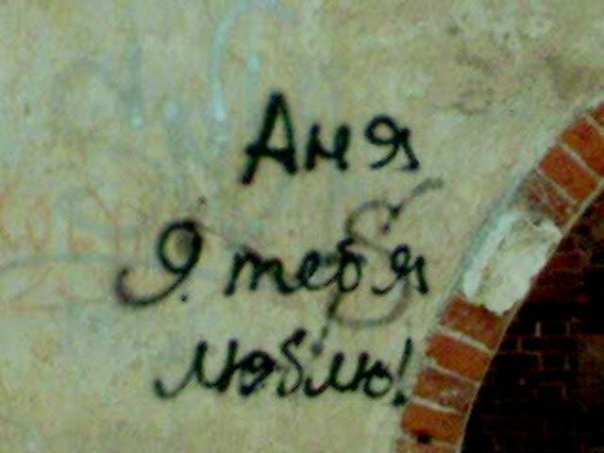 Аня
Я тебя
люблю!